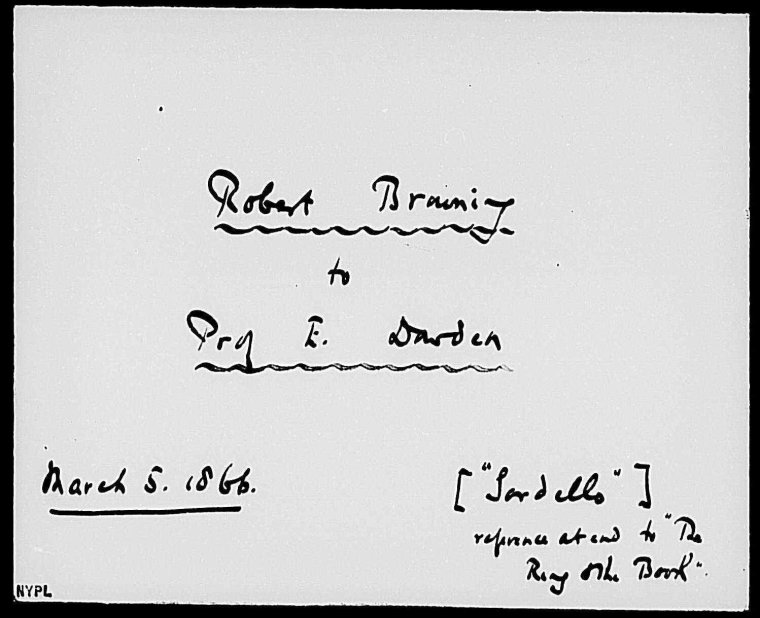 Robert Browning
to
Prof E. Dowden
March 5. 1866.
["Sordello"]
reference at end to "The
Ring & the Book".
NYPL